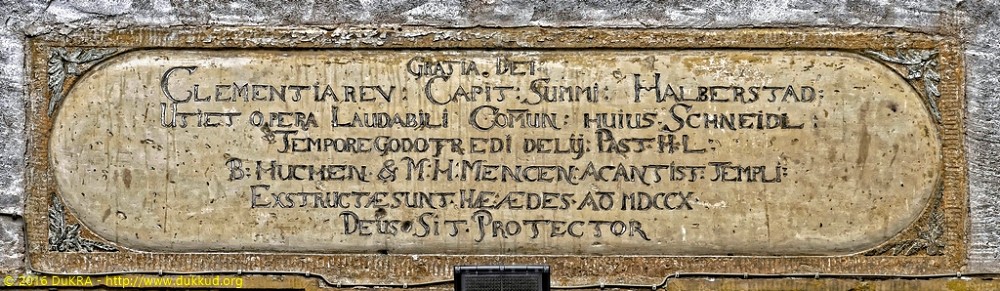 GRATIA. DEI
CLEMENTIAREV: CAPIT: SUMMI: HALBERSTAD:
UTIET OPERA LAUDABILI COMUN: HUIUS SCHNEIDL:
TEMPORE GODOFREDI DELIJ: PAST. H. L.:
B: HUCHEN & M. H. MENCEN. ACANTIST. TEMPLI:
EXSTRUCTÆ SUNT. HÆ ÆDES. AO MDCCX.
DEUS. SIT. PROTECTOR
© 2016 DuKRA - http://www.dukkud.org